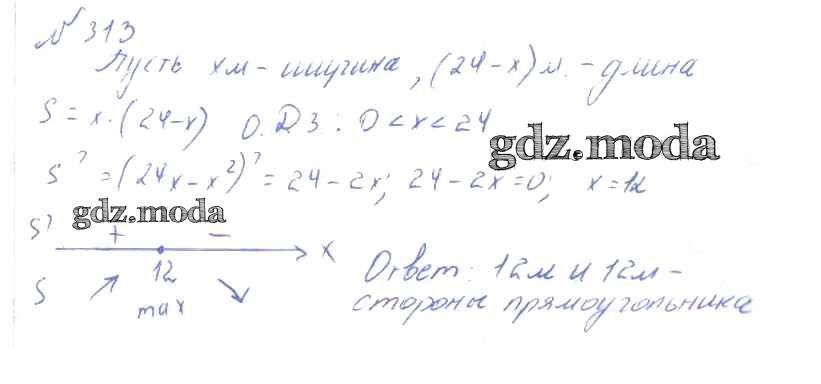 № 313
Пусть xм - ширина, (24-x) м. - длина
S = x·(24-x) О.Д З: 0 < x < 24
gdz.moda
S' = (24x - x²)' = 24 - 2x; 24 - 2x = 0; x = 12
gdz.moda
S' + - x
12
S ↗ ↘
max
Ответ: 12м и 12м -
стороны прямоугольника